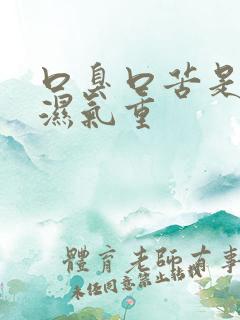 口臭口苦是
濕氣重
體育老師有事
未經同意禁止轉載